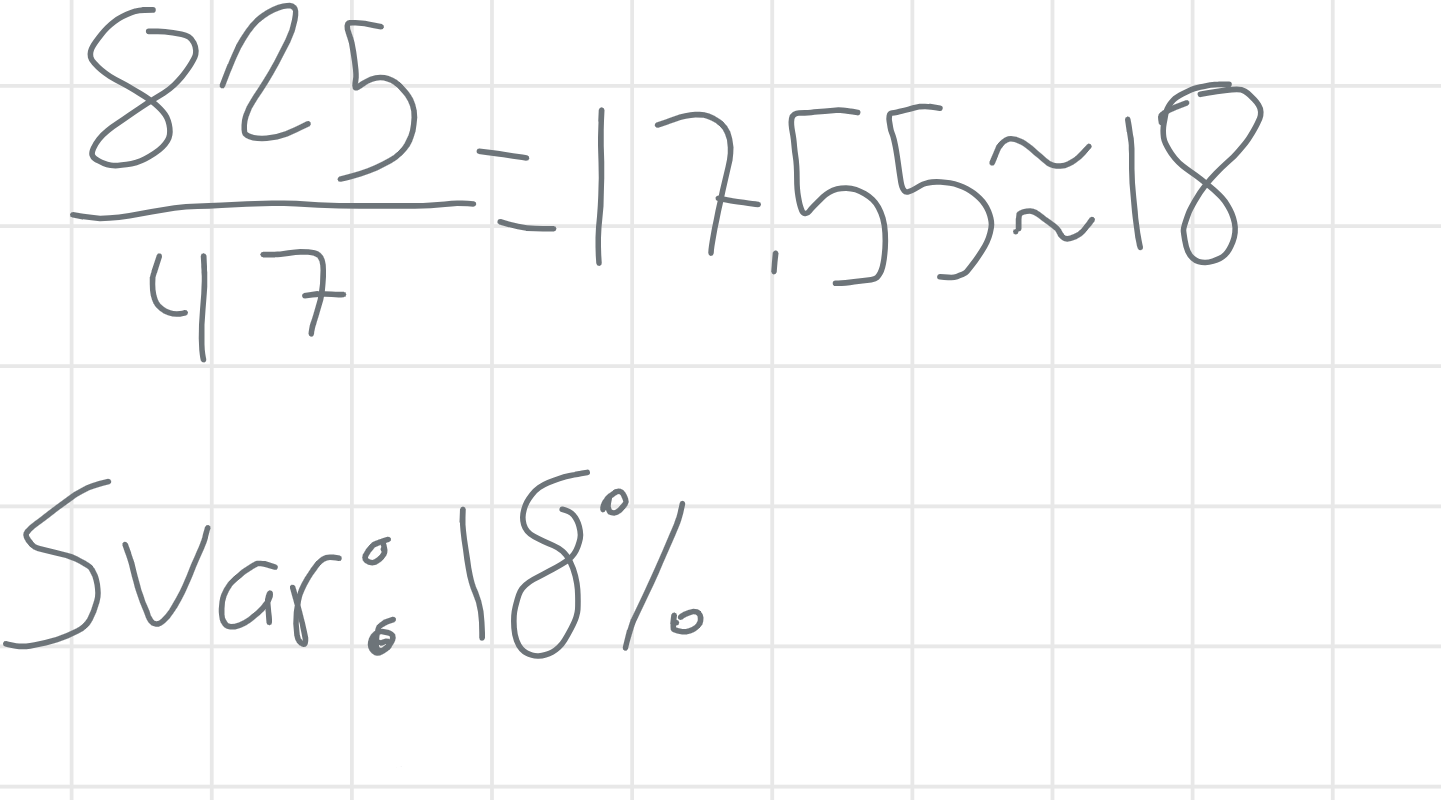 825/47 = 17,55 ≈ 18
Svar: 18%